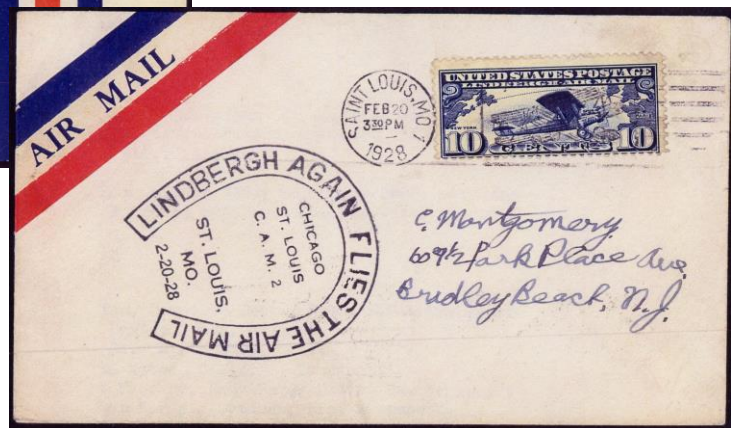 AIR MAIL
SAINT LOUIS, MO. 1
FEB 20
3 30 PM
1928
UNITED STATES POSTAGE
LINDBERGH-AIR MAIL
NEW YORK
10 CENTS 10
LINDBERGH AGAIN FLIES THE AIR MAIL
CHICAGO
ST. LOUIS
C. A. M. 2
ST. LOUIS,
MO.
2-20-28
C. Montgomery
609½ Park Place Ave.
Bradley Beach, N.J.